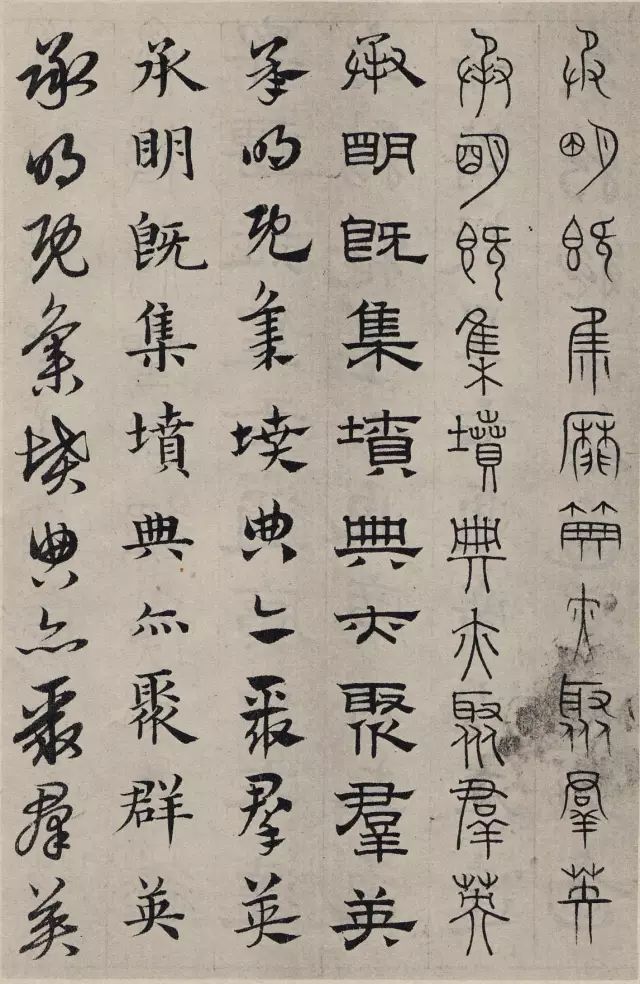 承明既集墳典亦聚群英
承明既集墳典亦聚羣英
承明既集墳典亦聚羣英
承明既集墳典亦聚羣英
承明既集墳典亦聚群英
承明既集墳典亦聚羣英